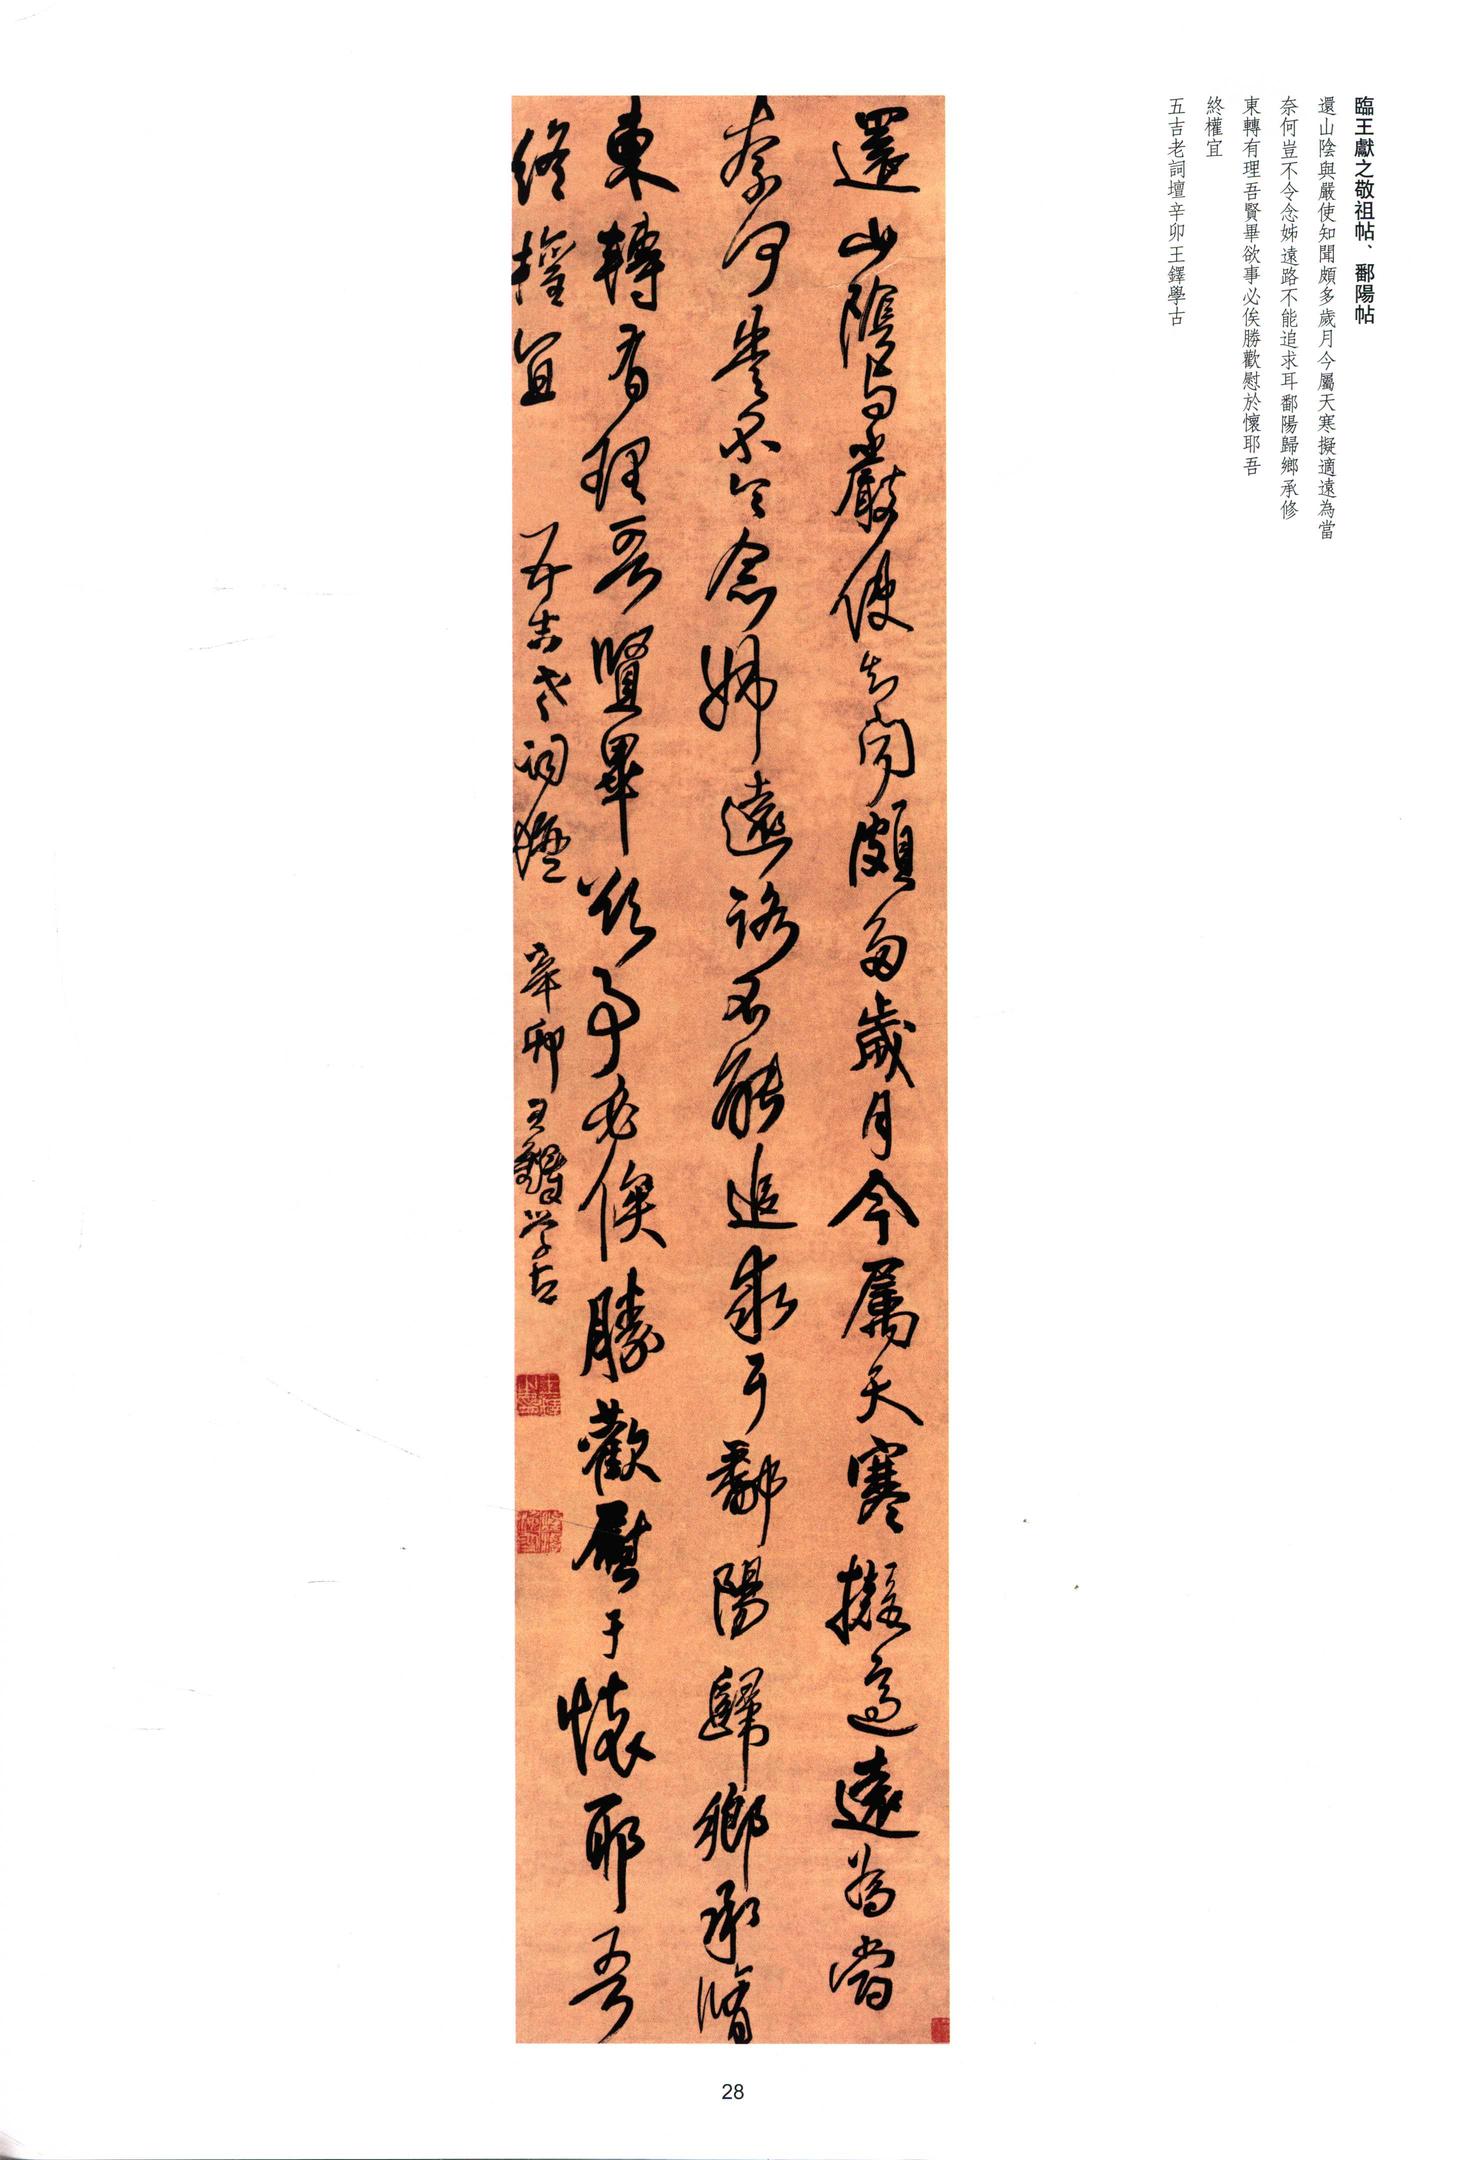 臨王獻之敬祖帖、鄱陽帖
還山陰與嚴使知聞頗多歲月今屬天寒擬適遠為當
奈何豈不令念姊遠路不能追求耳鄱陽歸鄉承修
東轉有理吾賢畢欲事必俟勝歡慰於懷耶吾
終權宜
五吉老詞壇辛卯王鐸學古
還山陰與嚴使知聞頗多歲月今屬天寒擬適遠為當
奈何豈不令念姊遠路不能追求耳鄱陽歸鄉承脩
東轉有理吾賢畢欲事必俟勝歡慰于懷耶吾
終權宜 五吉老詞壇 辛卯王鐸学古
28